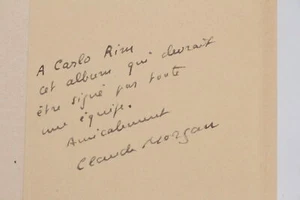 A Carlo Rim
cet album qui devrait
être signé par toute
une équipe.
Amicalement
Claude Morgan